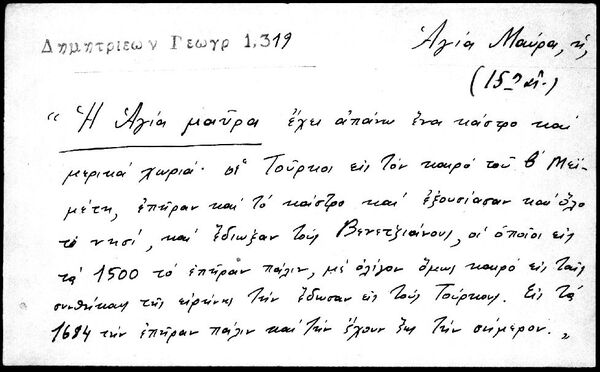 Δημητριεων Γεωγρ 1,319
Ἁγία Μαύρα, ἡ,
(15ος αἰ.)
"Ἡ Ἁγία μαῦρα ἔχει ἀπάνω ἕνα κάστρο καὶ
μερικὰ χωριά· οἱ Τοῦρκοι εἰς τὸν καιρὸ τοῦ β' Μεϊ-
μέτη, ἐπῆραν καὶ τὸ κάστρο καὶ ἐξουσίασαν καὶ ὅλο
τὸ νησί, καὶ ἔδιωξαν τοὺς Βενετζιάνους, οἱ ὁποῖοι εἰς
τὰ 1500 τὸ ἐπῆραν πάλιν, μὲ ὀλίγον ὅμως καιρὸ εἰς ταῖς
συνθήκαις τῆς εἰρήνης τὴν ἔδωσαν εἰς τοὺς Τούρκους. Εἰς τὰ
1684 τὴν ἐπῆραν πάλιν καὶ τὴν ἔχουν ἕως τὴν σήμερον. "